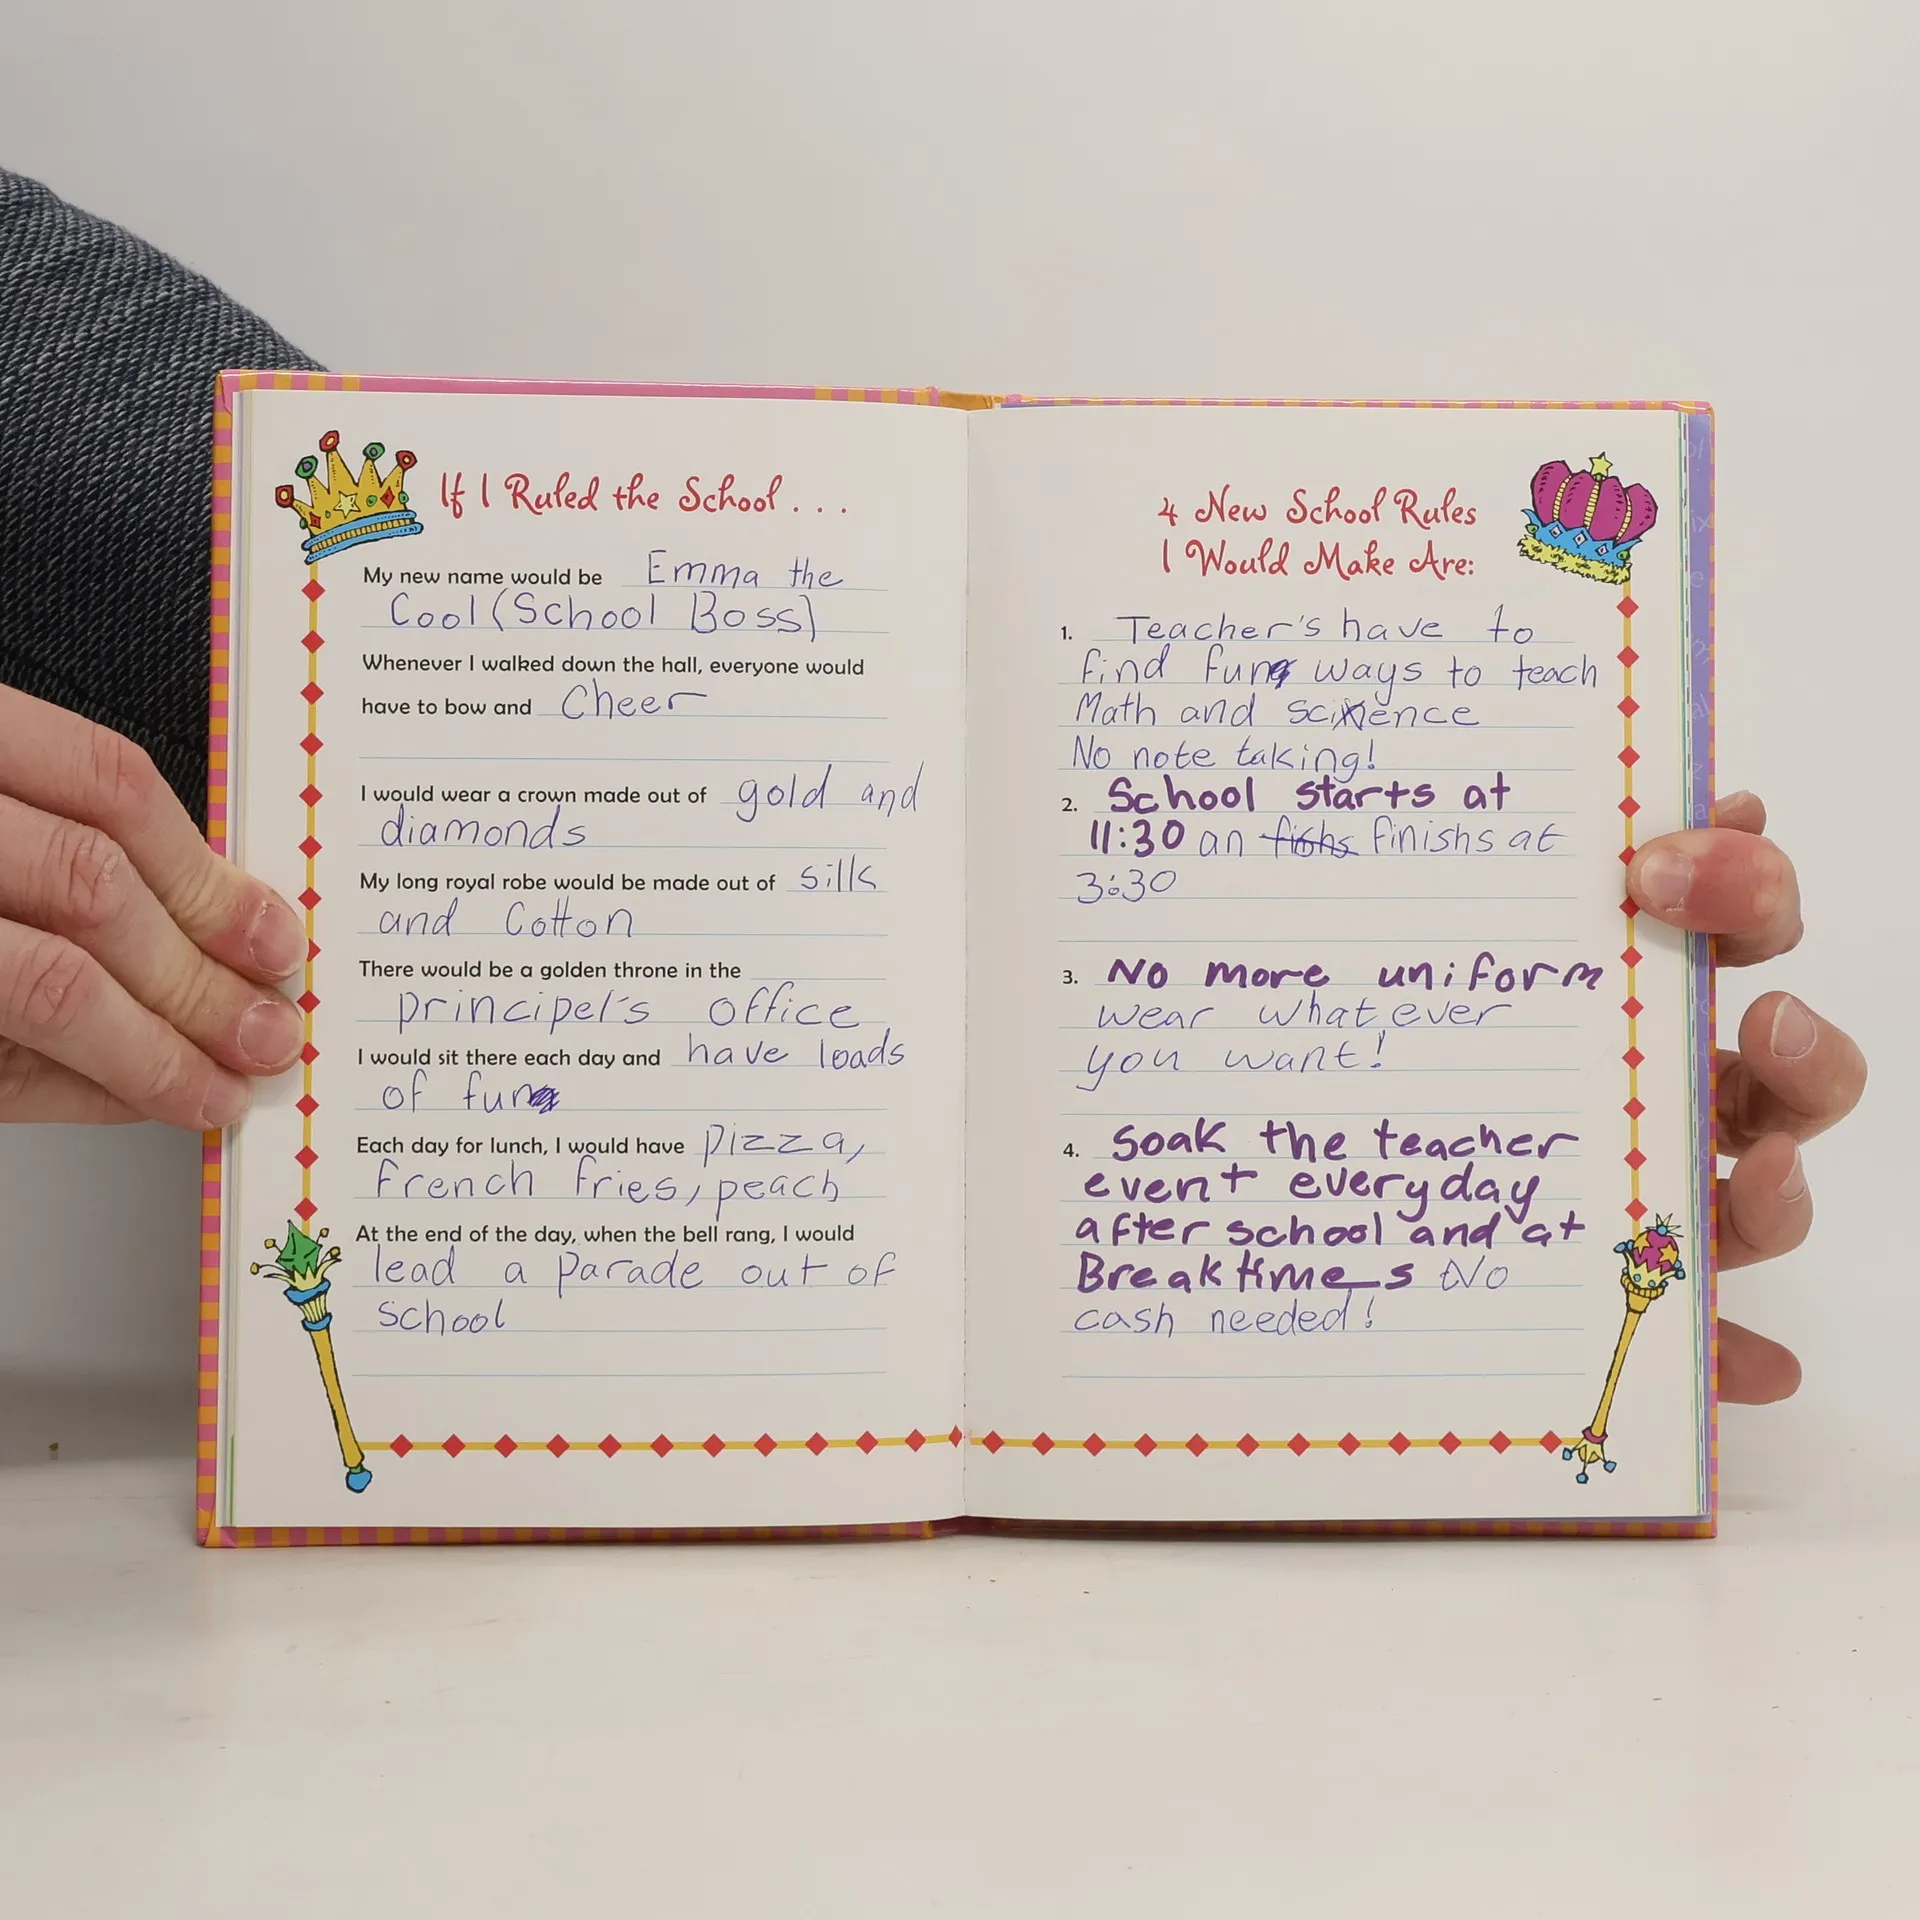 If I Ruled the School . . .
My new name would be Emma the
Cool (School Boss)
Whenever I walked down the hall, everyone would
have to bow and Cheer
I would wear a crown made out of gold and
diamonds
My long royal robe would be made out of silk
and Cotton
There would be a golden throne in the
principel's office
I would sit there each day and have loads
of fun
Each day for lunch, I would have pizza,
french fries, peach
At the end of the day, when the bell rang, I would
lead a Parade out of
school
4 New School Rules
I Would Make Are:
1. Teacher's have to
find fun ways to teach
Math and science
No note taking!
2. School starts at
11:30 an fishs finishs at
3:30
3. No more uniform
wear what ever
you want!
4. Soak the teacher
event everyday
after school and at
Breaktimes No
cash needed!